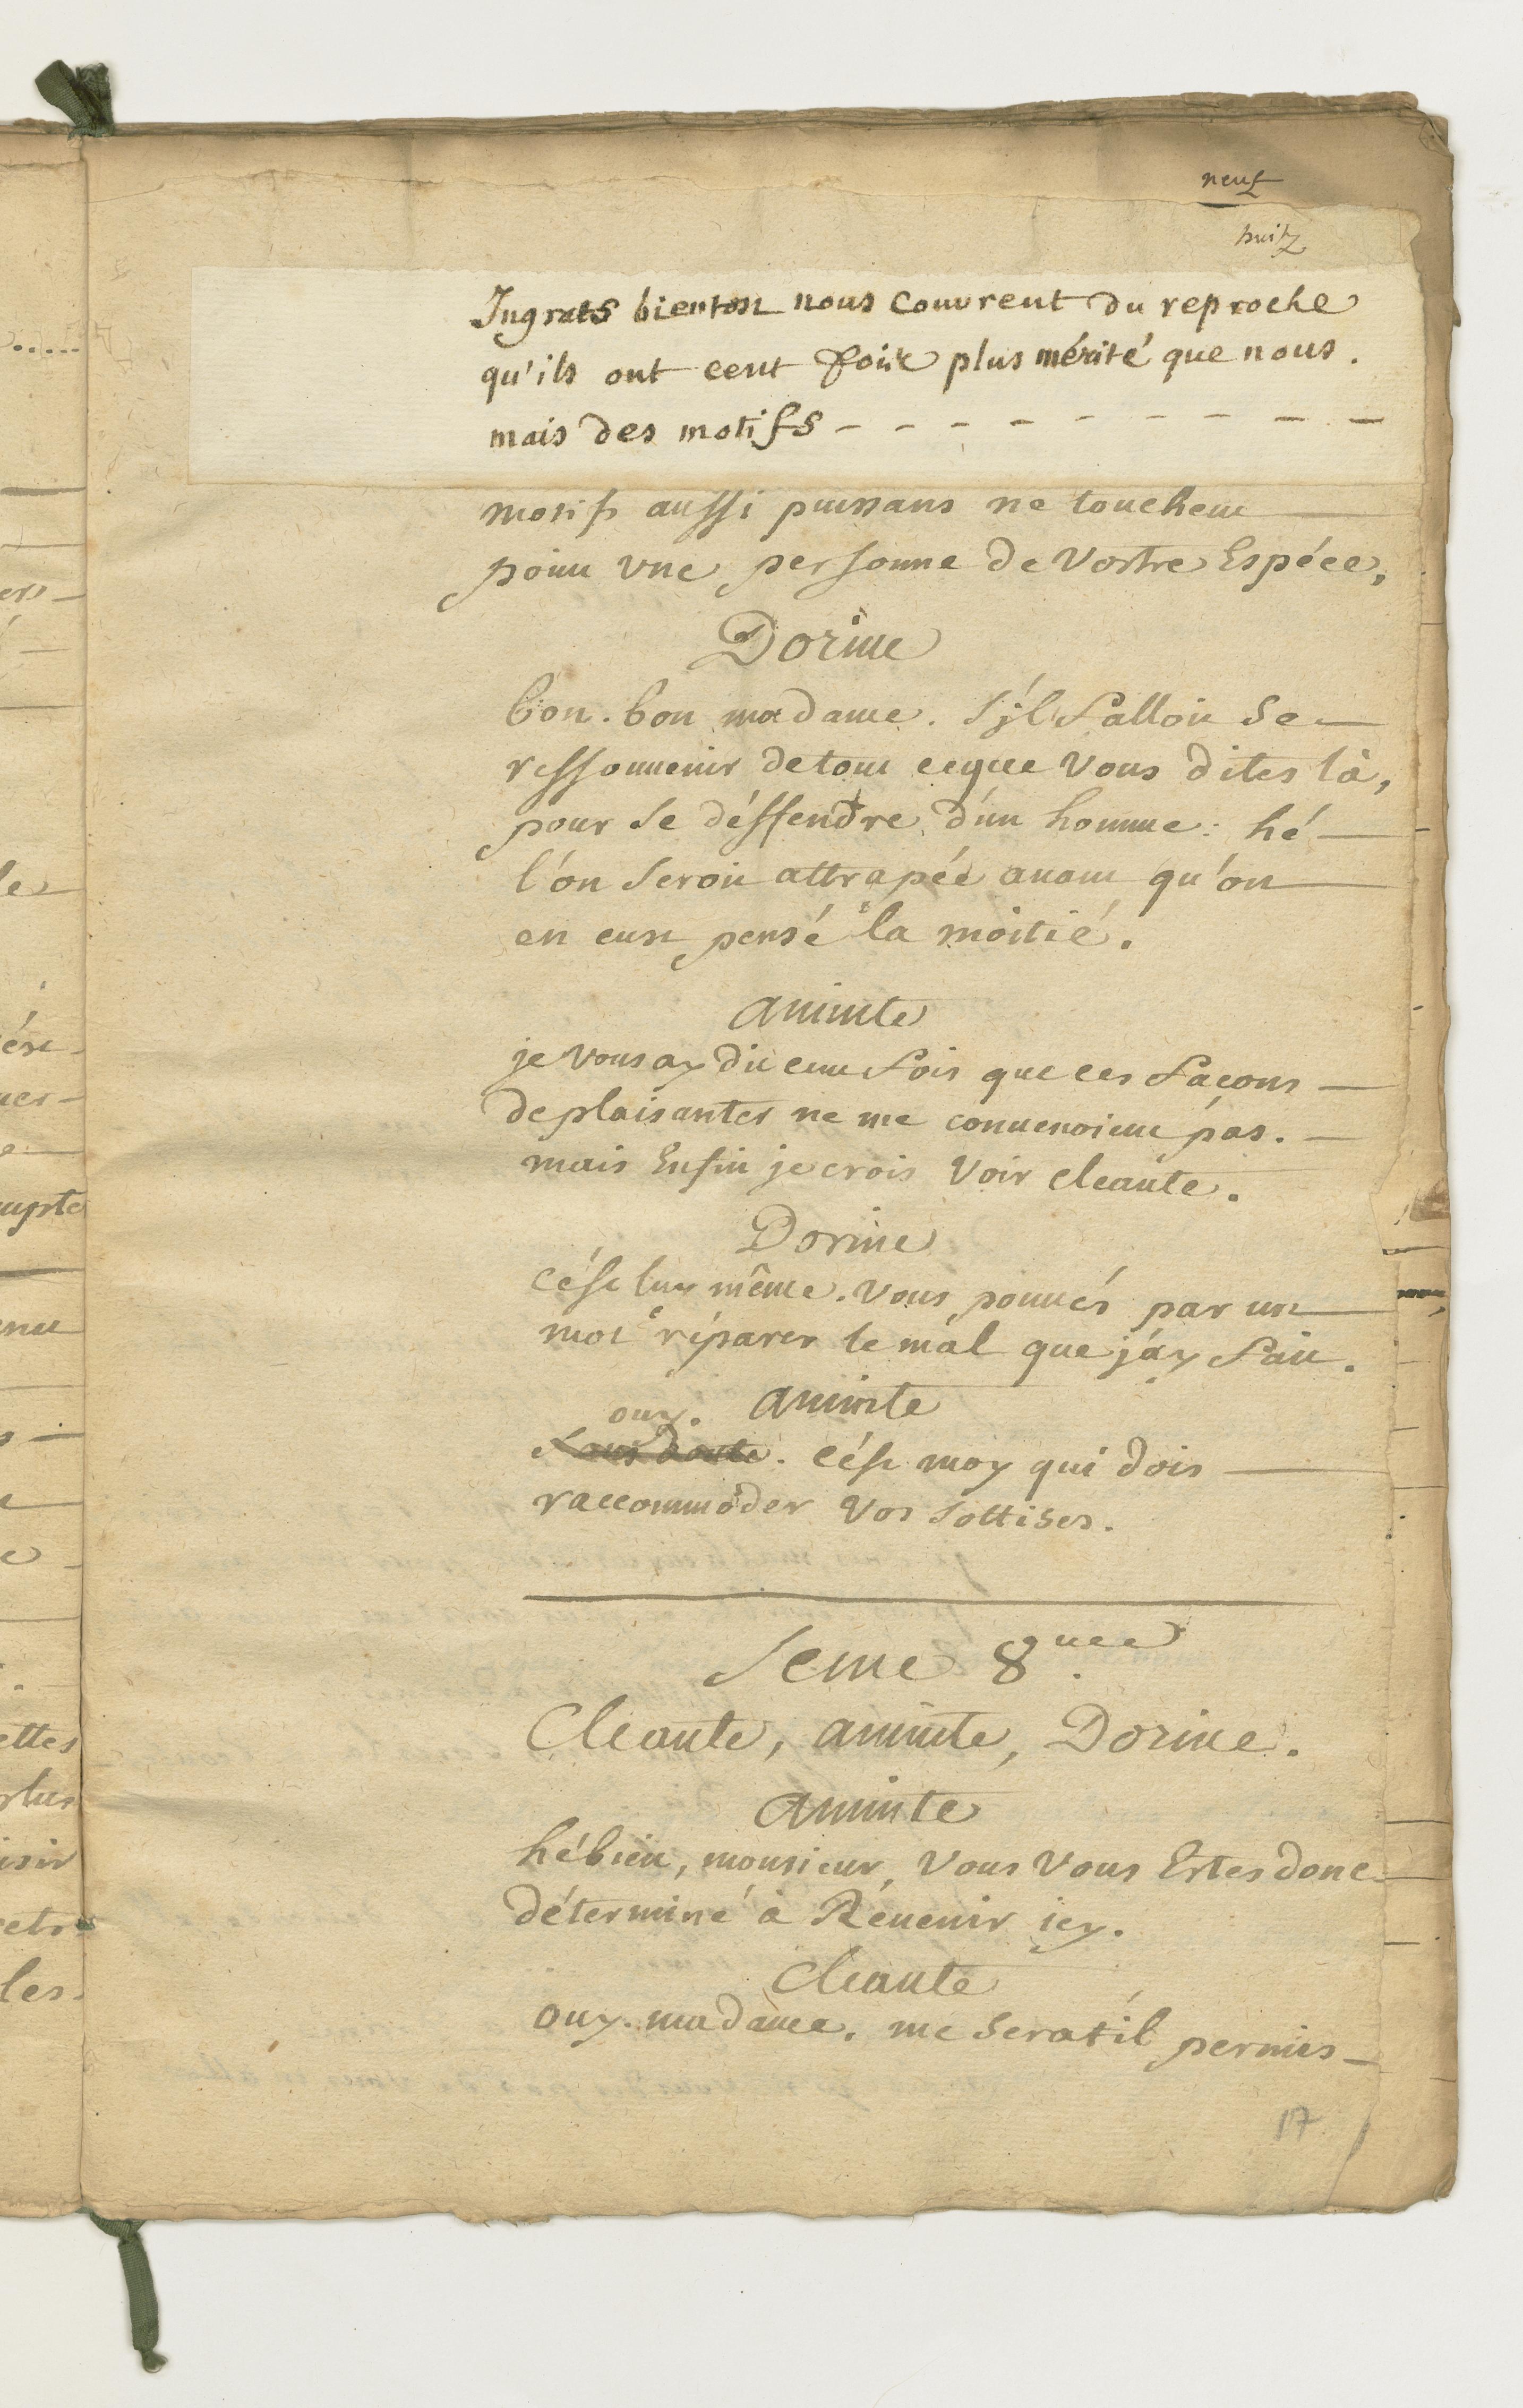 neuf
huit
Ingrats bientost nous couvrent du reproche
qu'ils ont cent fois plus mérité que nous.
mais des motifs - - - - - - - - - -
motifs aussi puissans ne touchent
point une personne de Vostre Espéce,
Dorine
bon. bon madame. s'jl falloit se
ressouuenir de tout ceque Vous dites là,
pour se déffendre d'un homme: hé
l'on seroit attrapée auant qu'on
en eust pensé la moitié.
aminte
je vous ay dit cent fois que ces façons
de plaisanter ne me conuenoient pas.
mais Enfin je crois Voir cleante.
Dorine
c'ést luy même. Vous pouués par un
mot réparer le mal que j'ay fait.
ouy. aminte
sans doute. c'ést moy qui dois
raccommoder Vos sottises.
Scene 8.me
Cleante, aminte, Dorine.
aminte
hébien, monsieur, Vous Vous Estes donc
déterminé à Réuenir icy.
Cleante
ouy. madame. me serat'il permis
17